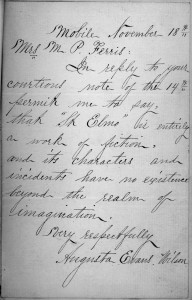 Mobile November 18th
Mrs M. P. Ferris:
In reply to your
courteous note of the 14th
permit me to say,
that "St Elmo" is entirely
a work of fiction.
and its characters and
incidents have no existence
beyond the realm of
imagination.
Very respectfully
Augusta Evans Wilson